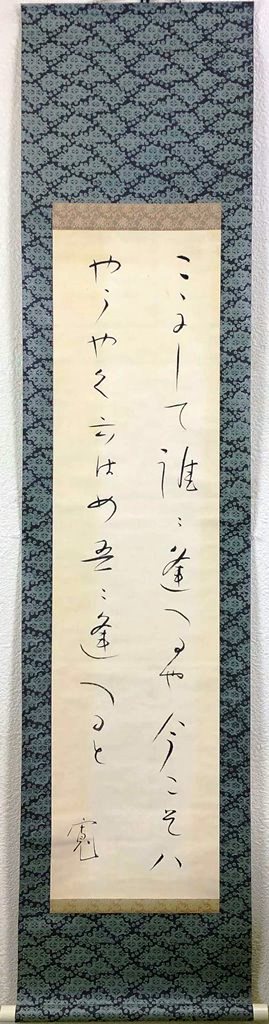 こゝにして誰ニ逢へるや今こそハ
やうやく云はめ吾ニ逢へると
寛